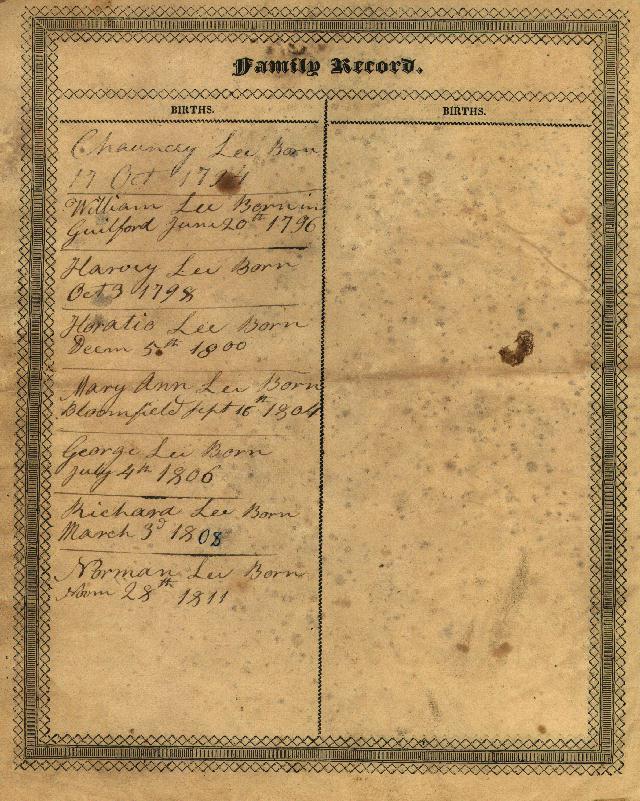 Family Record.
BIRTHS.
BIRTHS.
Chauncey Lee Born
17 Oct 1794
William Lee Born in
Guilford June 20th 1796
Harvey Lee Born
Oct 3 1798
Horatio Lee Born
Decm 5th 1800
Mary Ann Lee Born
Bloomfield Sept 16th 1804
George Lee Born
July 4th 1806
Richard Lee Born
March 3d 1808
Norman Lee Born
28th 1811